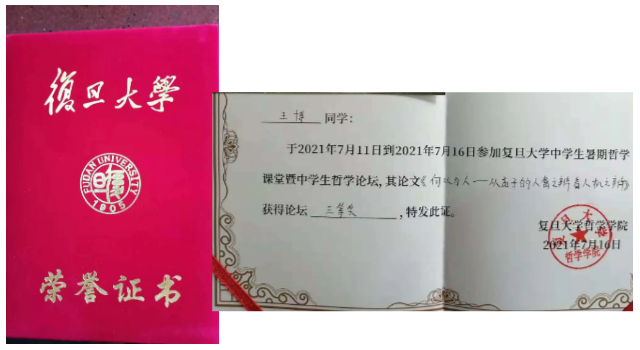 復旦大學
FUDAN UNIVERSITY
1905
荣誉证书
王博 同学：
于2021年7月11日到2021年7月16日参加复旦大学中学生暑期哲学
课堂暨中学生哲学论坛，其论文《何以为人——从孟子的人禽之辨看人机之辨》
获得论坛 三等奖 ，特发此证。
复旦大学哲学学院
2021年7月16日
复旦大学
哲学学院